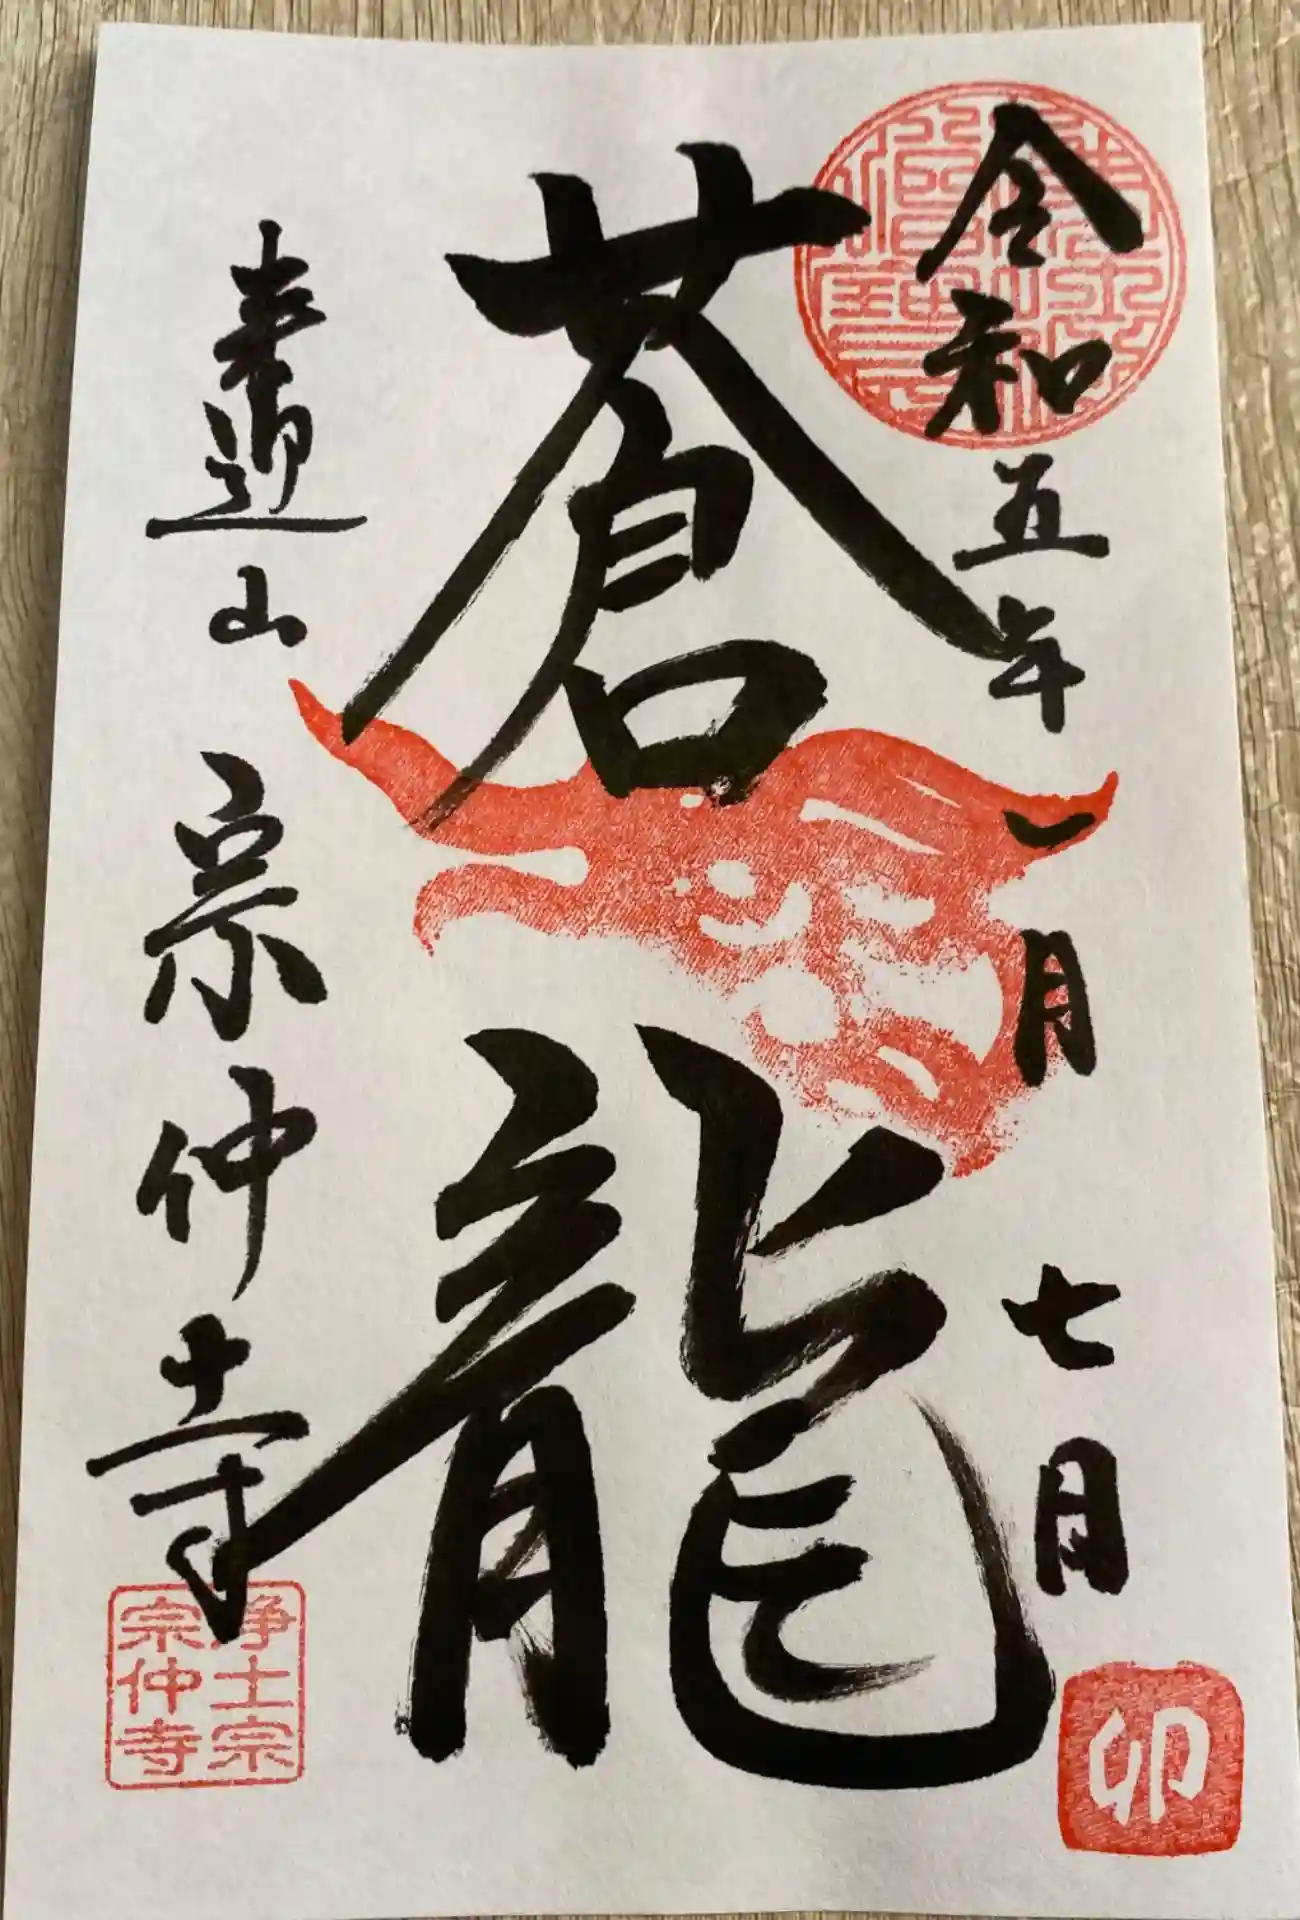 令和五年一月七日
卯
蒼龍
来迎山 宗仲寺
浄土宗
宗仲寺